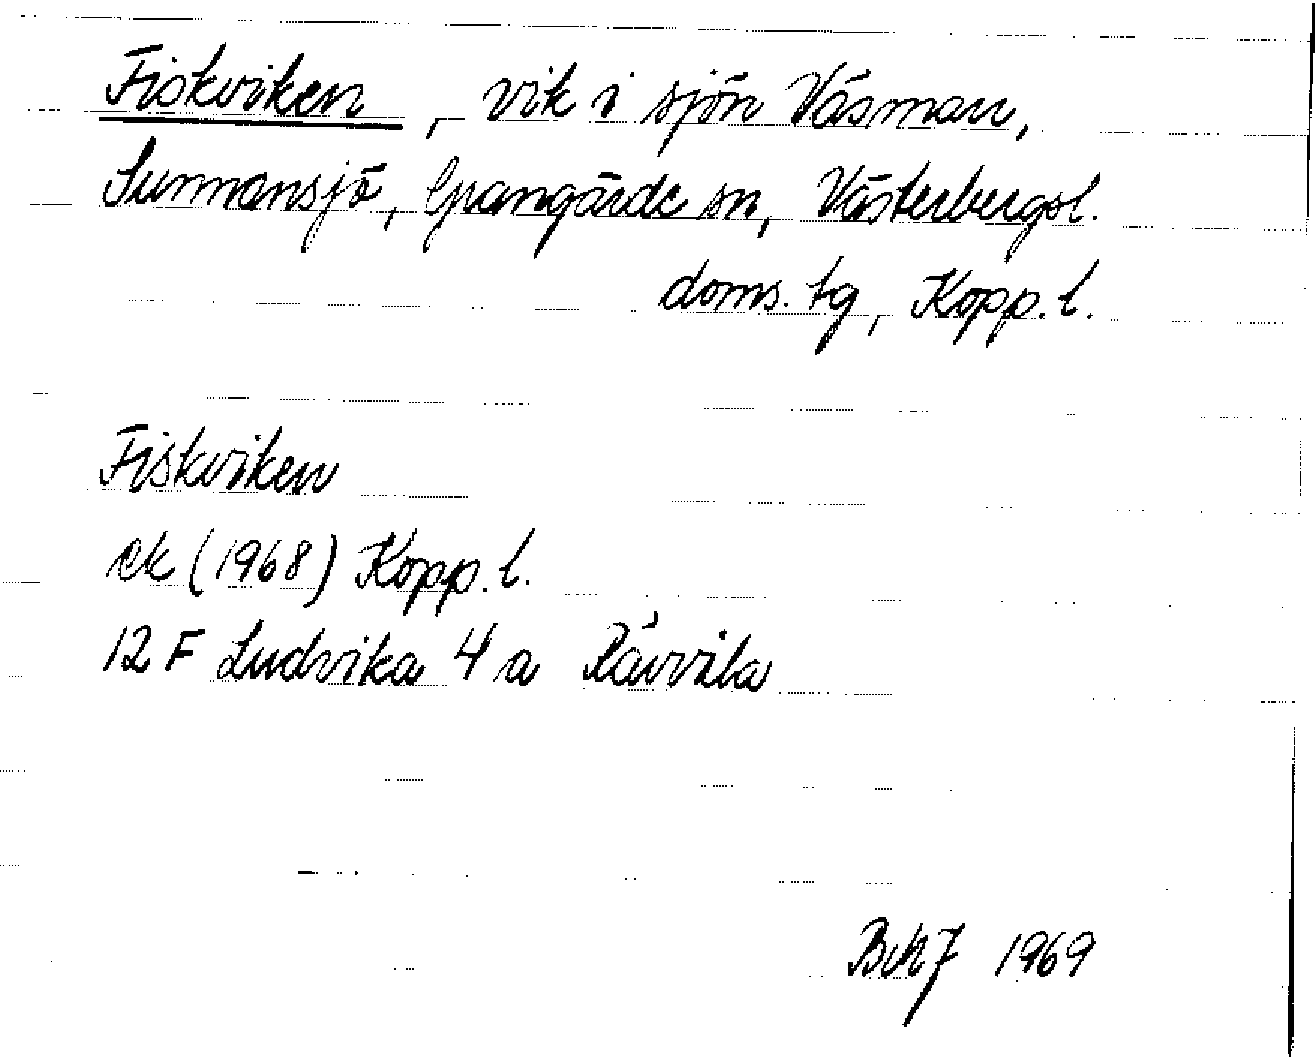 Fiskviken, vik i sjön Väsman,
Sunnansjö, Grangärde sn, Västerbergsl.
doms. tg, Kopp. l.
Fiskviken
ek (1968) Kopp. l.
12 F Ludvika 4 a Råvvila
1969